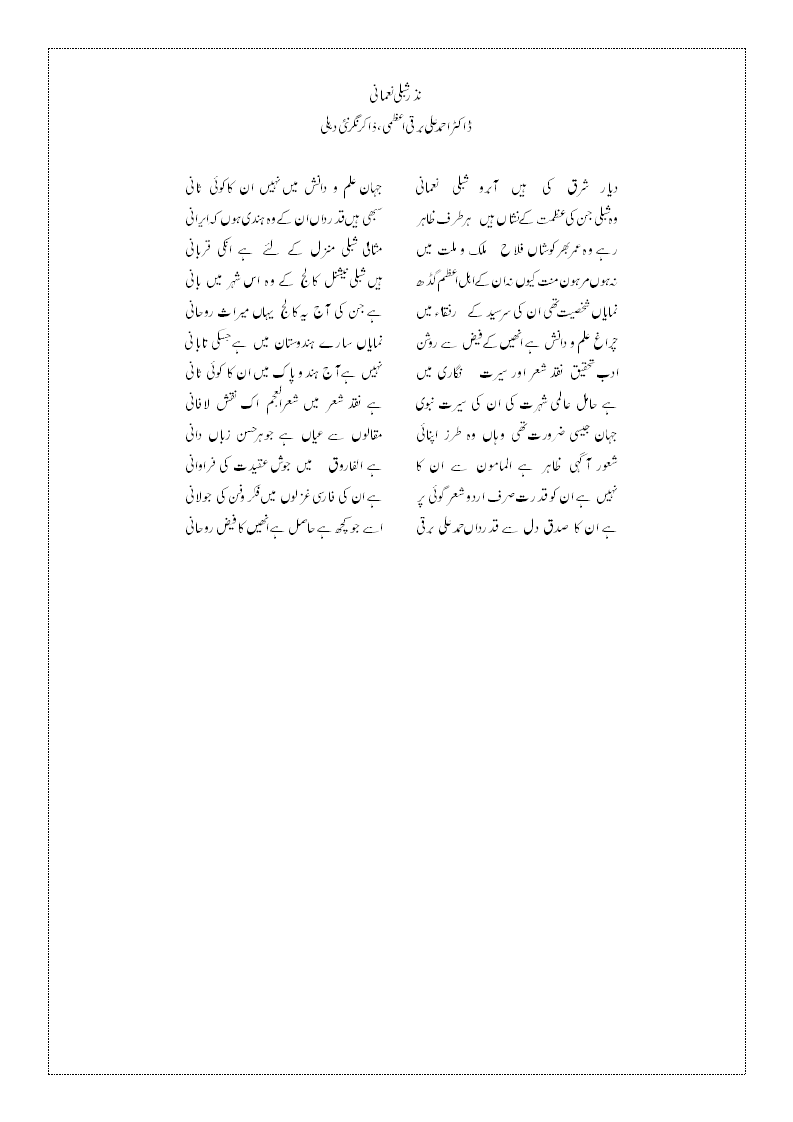 نذر شبلی نعمانی
ڈاکٹر احمد علی برقی اعظمی، ذاکر نگر نئی دہلی
دیار شرق کی ہیں آبرو شبلی نعمانی جہان علم و دانش میں نہیں ان کا کوئی ثانی
وہ شبلی جن کی عظمت کے نشاں ہیں ہر طرف ظاہر سبھی ہیں قدرداں ان کے وہ ہندی ہوں کہ ایرانی
رہے وہ عمر بھر کوشاں فلاح ملک و ملت میں مثالی شبلی منزل کے لئے ہے انکی قربانی
نہ ہوں مرہون منت کیوں نہ ان کے اہل اعظم گڈھ ہیں شبلی نیشنل کالج کے وہ اس شہر میں بانی
نمایاں شخصیت تھی ان کی سرسید کے رفقاء میں ہے جن کی آج یہ کالج یہاں میراث روحانی
چراغ علم و دانش ہے انھیں کے فیض سے روشن نمایاں سارے ہندوستان میں ہے جسکی تابانی
ادب تحقیق نقد شعر اور سیرت نگاری میں نہیں ہے آج ہند و پاک میں ان کا کوئی ثانی
ہے حامل عالمی شہرت کی ان کی سیرت نبوی ہے نقد شعر میں شعرالعجم اک نقش لافانی
جہان جیسی ضرورت تھی وہاں وہ طرز اپنائی مقالوں سے عیاں ہے جوہر حسن زباں دانی
شعور آگہی ظاہر ہے المامون سے ان کا ہے الفاروق میں جوش عقیدت کی فراوانی
نہیں ہے ان کو قدرت صرف اردو شعر گوئی پر ہے ان کی فارسی غزلوں میں فکر و فن کی جولانی
ہے ان کا صدق دل سے قدرداں احمد علی برقی اسے جو کچھ ہے حاصل ہے انھیں کا فیض روحانی